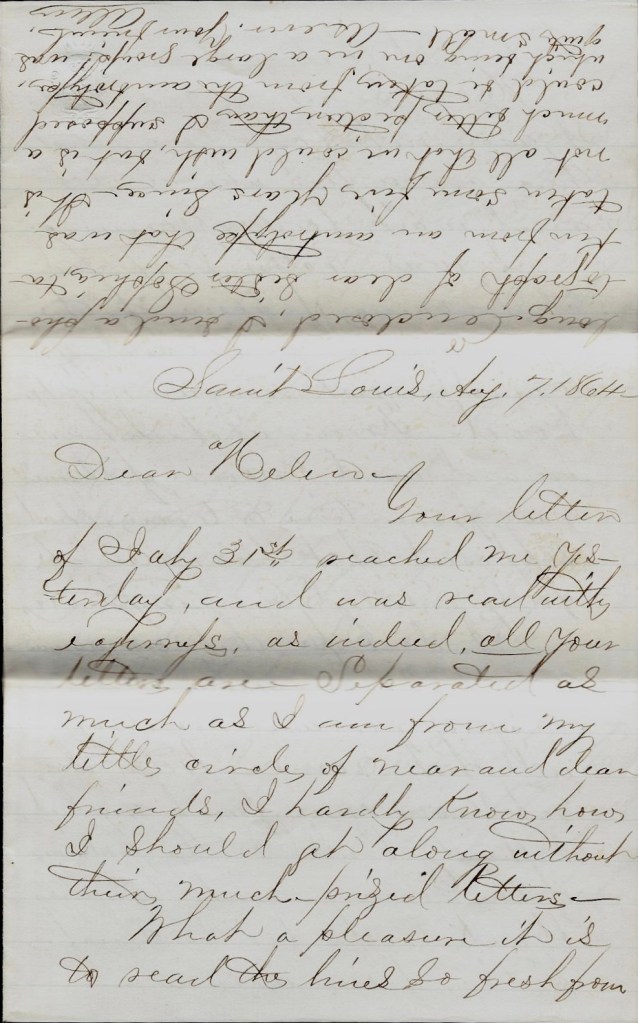 Saint Louis, Aug. 7. 1864-
Dear Helen-
Your letter
of July 31st reached me yes-
terday, and was read with
eagerness, as indeed, all your
letters are- Separated as
much as I am from my
little circle of near and dear
friends, I hardly know how
I should get along without
their much-prized letters-
What a pleasure it is
to read the lines so fresh from
Enclosed, I send a pho-
tograph of dear Sister Sophia, ta-
ken from an ambrotype that was
taken some five years since- It is
not all that we could wish, but is a
much better picture than I supposed
could be taken from the ambrotype,
which being one in a large group, was
quite small- As ever Your friend,